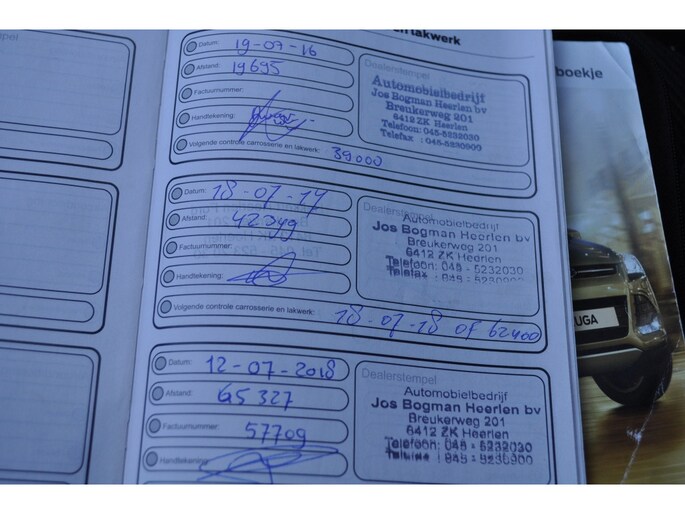 en lakwerk
Datum: 19-07-16
Afstand: 19695
Factuurnummer:
Handtekening:
Volgende controle carrosserie en lakwerk: 39000
Dealerstempel
Automobielbedrijf
Jos Bogman Heerlen bv
Breukerweg 201
6412 ZK Heerlen
Telefoon: 045-5232030
Telefax : 045-5230900
Datum: 18-07-17
Afstand: 42349
Factuurnummer:
Handtekening:
Volgende controle carrosserie en lakwerk: 18-07-18 of 62400
Dealerstempel
Automobielbedrijf
Jos Bogman Heerlen bv
Breukerweg 201
6412 ZK Heerlen
Telefoon: 045 - 5232030
Telefax : 045 - 5230900
Datum: 12-07-2018
Afstand: 65327
Factuurnummer: 57709
Handtekening:
Dealerstempel
Automobielbedrijf
Jos Bogman Heerlen bv
Breukerweg 201
6412 ZK Heerlen
Telefoon: 045 - 5232030
Telefax : 045 - 5230900
boekje
UGA